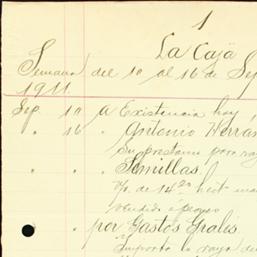 1
La Caja
Semana del 10 al 16 de Sep
1911
Sep. 10 a Existencia hoy
" 16 " Antonio Herrán
Su préstamo para ra
" " Semillas
de 14 hect. ma
vendido á pesos
" " por Gastos Grales
Importe la raya de